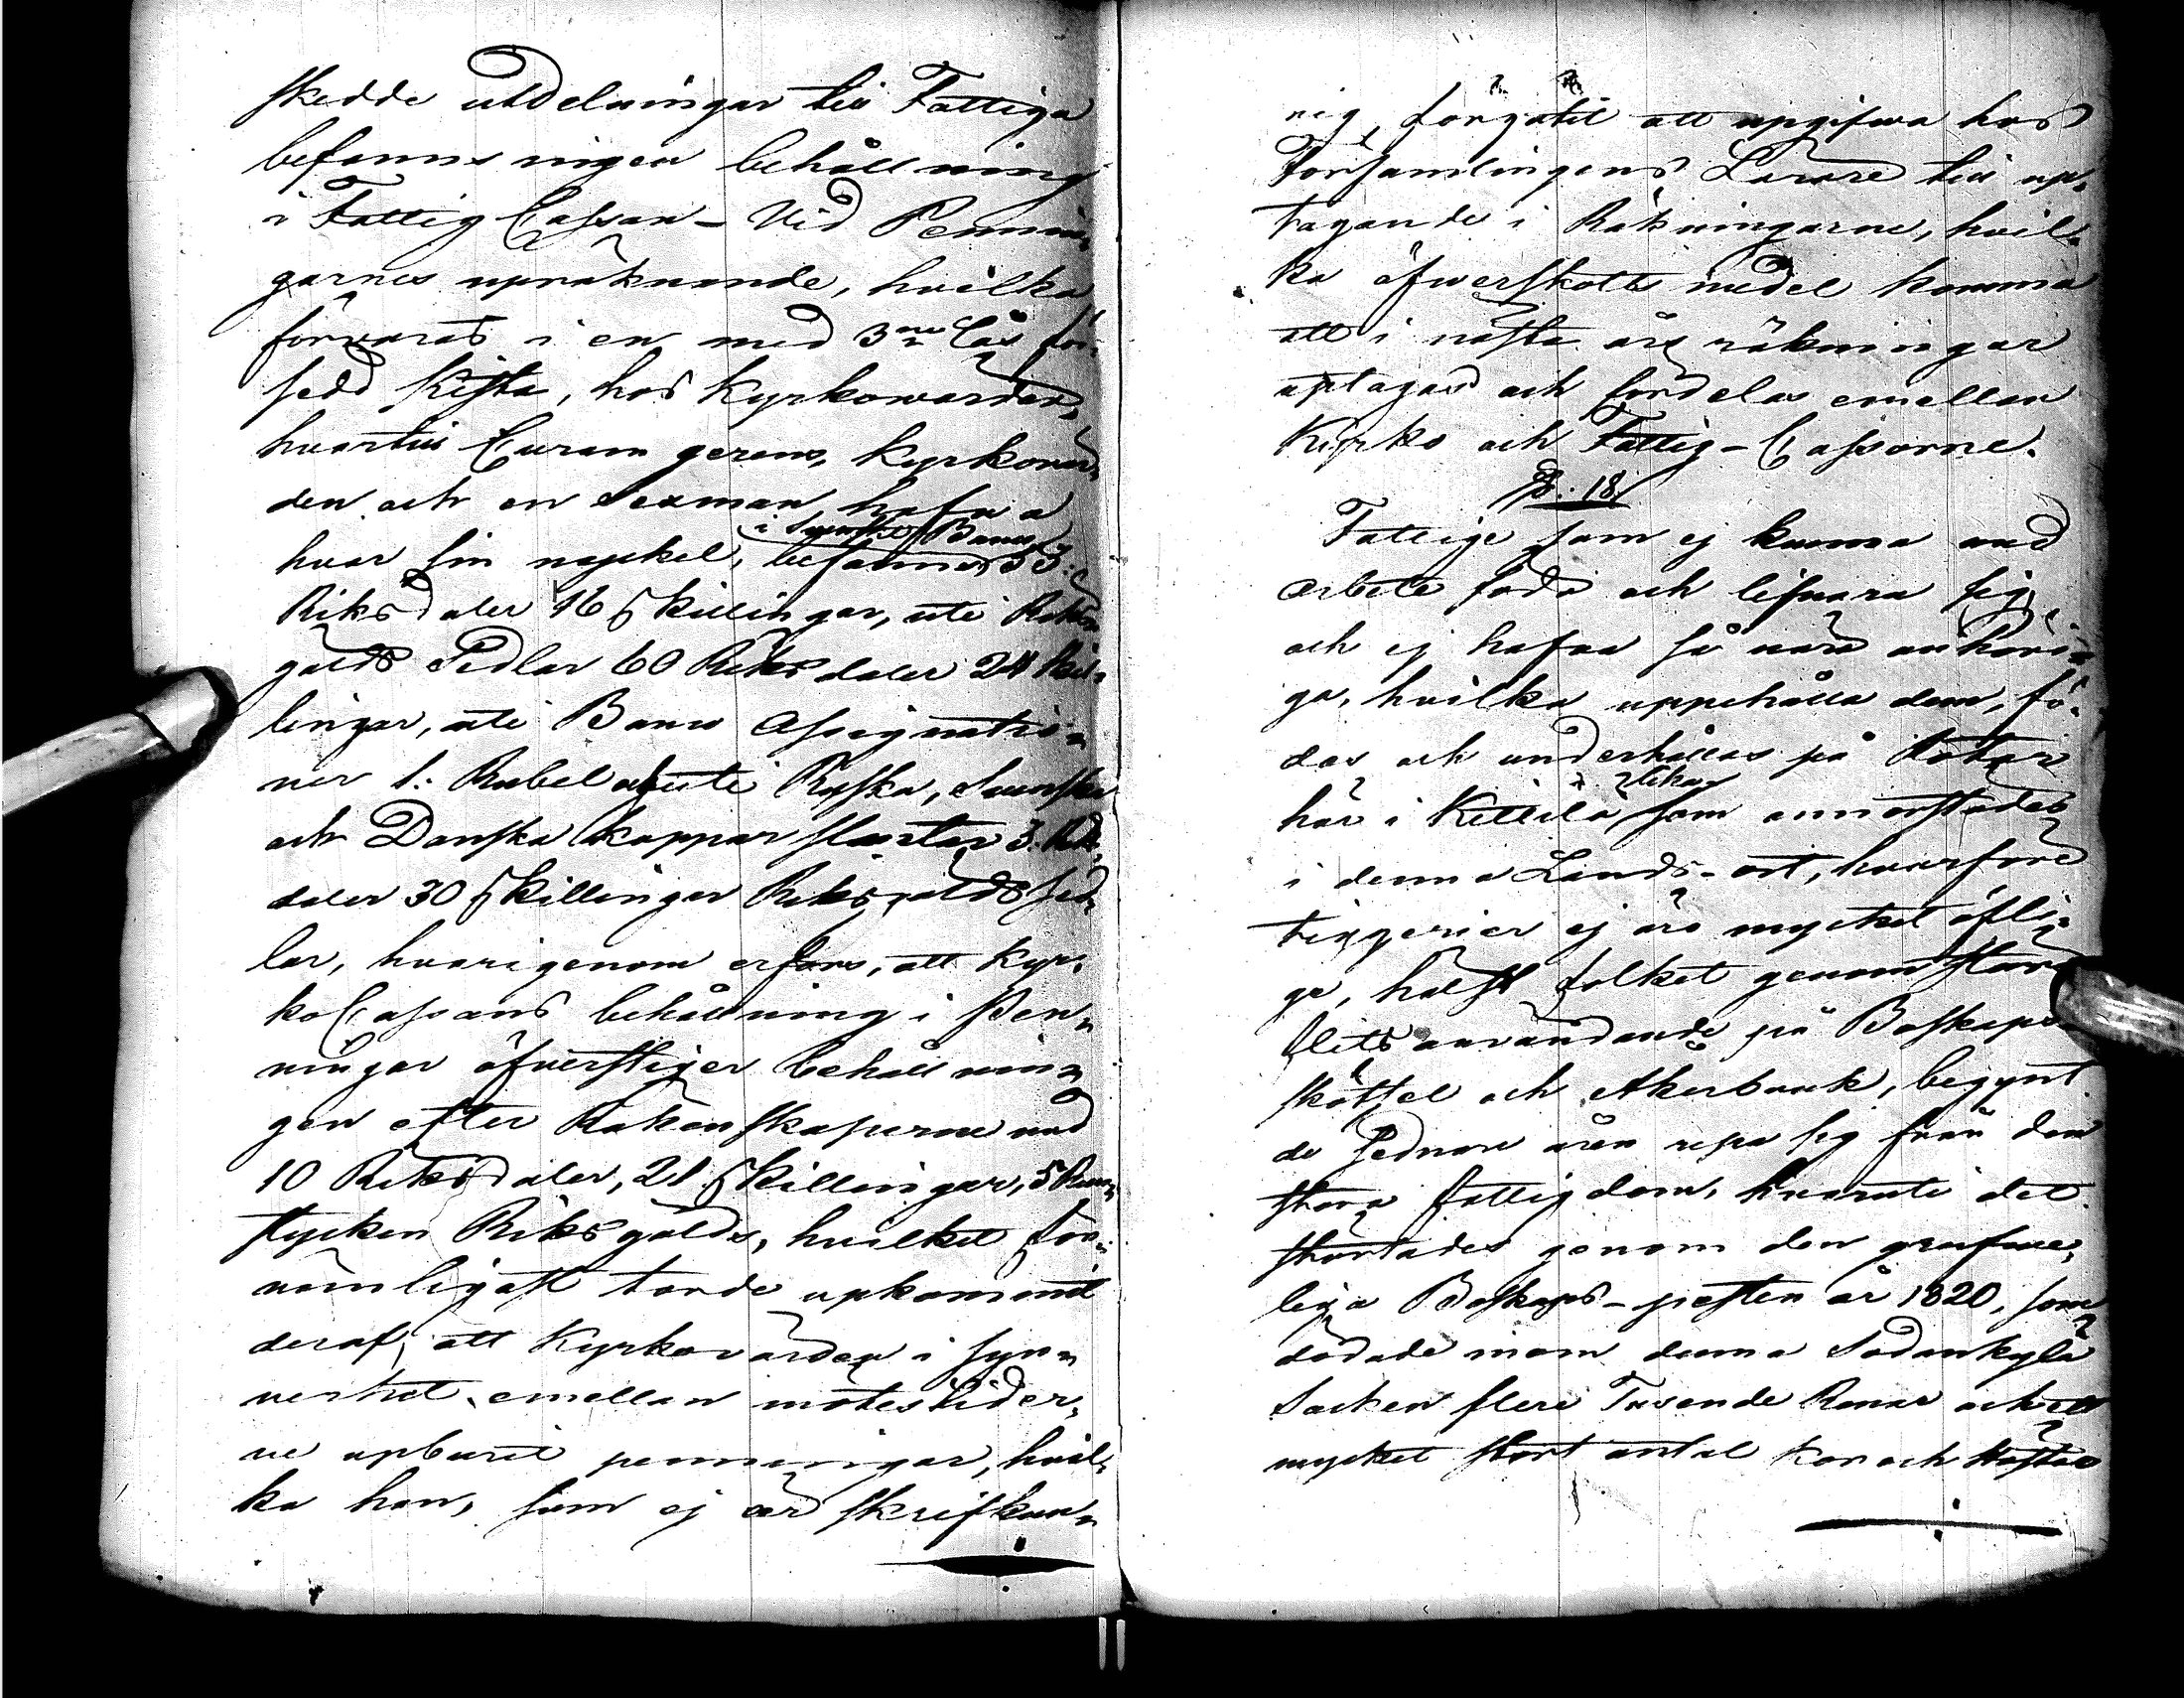 skedde utdelningar till Fattiga
befanns ingen behållning
i Fattig Cassan – Vid Pennin„
garnes upräknande, hvilka
förvaras i en med 3ne lås för„
sedd kista, hos Kyrkovärden,
hvartill Curam gerens, Kyrkovär„
den och en Sexman hafva
i Svenskt Banco
hvar sin nyckel, befanns 53:
Riksdaler 16 skillingar, uti Riks„
gälds Sedlar 60 Riksdaler 24 skil„
lingar, uti Banco Assignatio„
ner 1: Rubel uti Ryska, Svenska
och Danska kopparslantar 3. Riks„
daler 30 skillingar Riksgälds sed„
lar, hvarigenom erfors, att Kyr„
koCassans behållning i Pen„
ningar öfverstiger behållnin„
gen efter Räkenskaperne med
10 Riksdaler, 21 skillingar, 5 Run„
stycken Riksgälds, hvilket för„
nämligast torde upkommit
deraf, att Kyrkovärden i syn„
nerhet emellan mötestider„
ne upburit penningar, hvil„
ka han, som ej är skrifkun„
nig, förgätit att upgifva hos
Församlingens Lärare till up„
tagande i Räkningarne, hvil„
ka öfverskotts medel komma
att i nästa års räkningar
uptagas och fördelas emellan
Kyrko och Fattig-Cassorne.
§. 18
Fattige som ej kunna med
arbete föda och lifnära sig,
och ej hafva så nära anhöri„
ga, hvilka uppehålla dem, fö„
das och underhållas på Rotar
likas
här i Kittilä, som annorstädes
i denna Lands-ort, hvarföre
tiggerier ej äro mycket öfli„
ga, hälst folket genom stor
flits användande på Boskaps
skötsel och Åkerbruk, begynt
de sednare åren repa sig från den
stora fattigdom, hvaruti det
störtades genom den grufve„
liga Boskaps-pesten år 1820, som
dödade inom denna Sodankylä
Socken flere Tusende Renar och ett
mycket stort antal Kor och Hästar